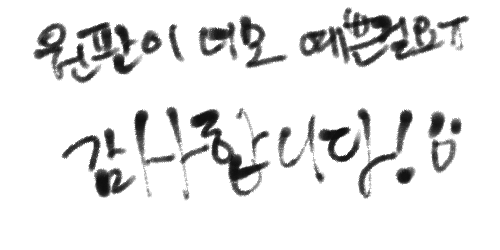 원판이 너모 예쁜걸요ㅠ
감사합니다! ㅎㅎ